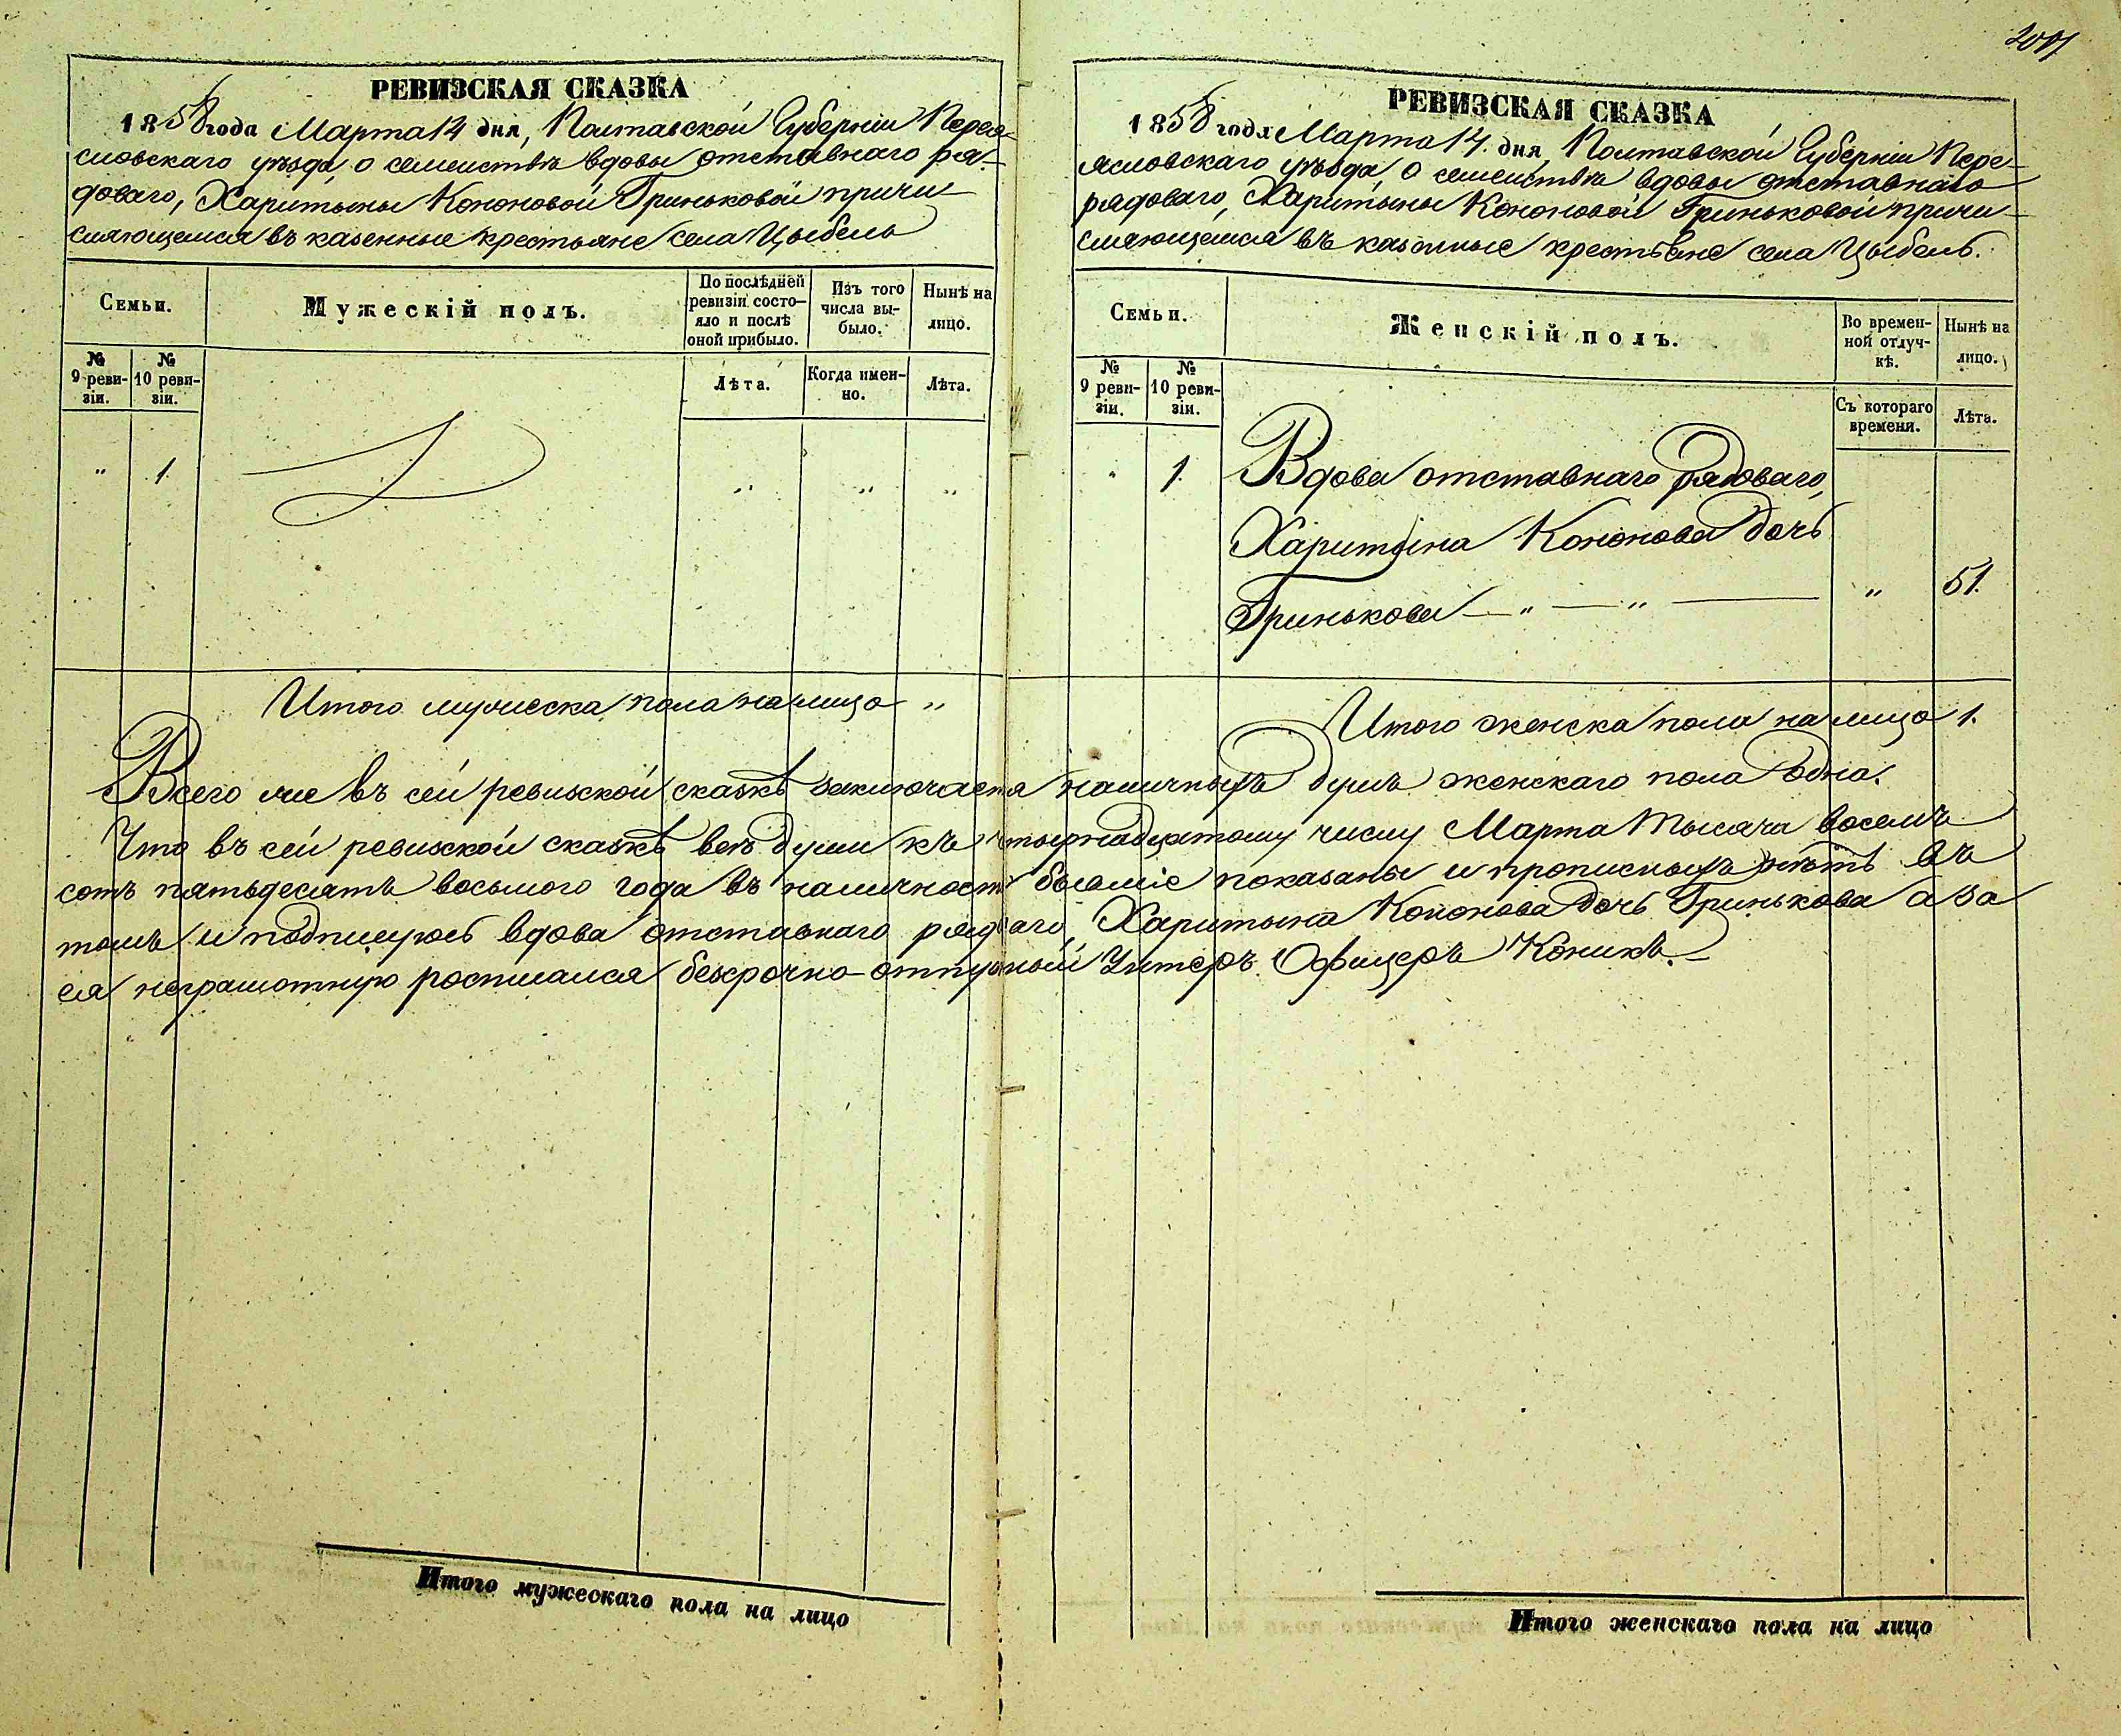 РЕВИЗСКАЯ СКАЗКА
1858 года Марта 14 дня, Полтавской Губерніи Перея-
словскаго уѣзда, о семействѣ вдовы отставнаго ря-
доваго, Харитыны Кононовой Гриньковой причи-
сляющемся въ казенные крестьяне села Цыбель
Семьи.
Мужескій полъ.
По послѣдней ревизіи состо-яло и послѣ оной прибыло.
Изъ того числа вы-было.
Нынѣ на лицо.
№ 9 реви-зіи.
№ 10 реви-зіи.
Лѣта.
Когда имен-но.
Лѣта.
" 1. " " "
Итого мужеска пола на лицо "
Итого мужескаго пола на лицо
РЕВИЗСКАЯ СКАЗКА
1858 года Марта 14. дня, Полтавской Губерніи Пере-
ясловскаго уѣзда, о семействѣ вдовы отставнаго
рядоваго, Харитыны Кононовой Гриньковой причи-
сляющемся въ казенные крестьяне села Цыбель.
Семьи.
Женскій полъ.
Во времен-ной отлуч-кѣ.
Нынѣ на лицо.
№ 9 реви-зіи.
№ 10 реви-зіи.
Съ котораго времени.
Лѣта.
" 1. Вдова отставнаго рядоваго,
Харитына Кононова дочь
Гринькова — " — " — " 51.
Итого женска пола на лицо 1.
Всего же въ сей ревизской сказкѣ заключается наличныхъ душъ женскаго пола одна.
Что въ сей ревизской сказкѣ всѣ души къ четырнадцатому числу Марта тысяча восемь
сотъ пятьдесятъ восьмого года въ наличности бывшіе показаны и прописныхъ нѣтъ въ
томъ и подписуюсь вдова отставнаго рядоваго, Харитына Кононова дочь Гринькова а за
ея неграмотную росписался безсрочно-отпускный Унтеръ Офицеръ Коникъ.
Итого женскаго пола на лицо